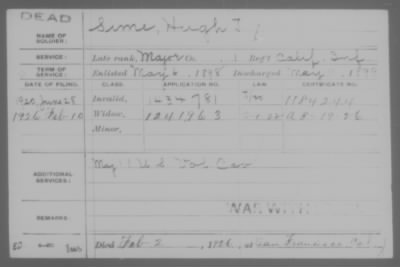 DEAD
NAME OF SOLDIER: Sime, Hugh T
SERVICE: Late rank, Major Co. 1 Reg't Calif. Inf
TERM OF SERVICE: Enlisted May 6, 1898 Discharged May, 1899
DATE OF FILING. CLASS. APPLICATION NO. LAW. CERTIFICATE NO.
June 28 Invalid, 1434781
1926 Feb-10 Widow, 1241963 A-8-19-26
Minor,
ADDITIONAL SERVICES: Maj 11 U S Vol Cav
WAR WITH
REMARKS:
Died Feb-2, 1926, at San Francisco Cal